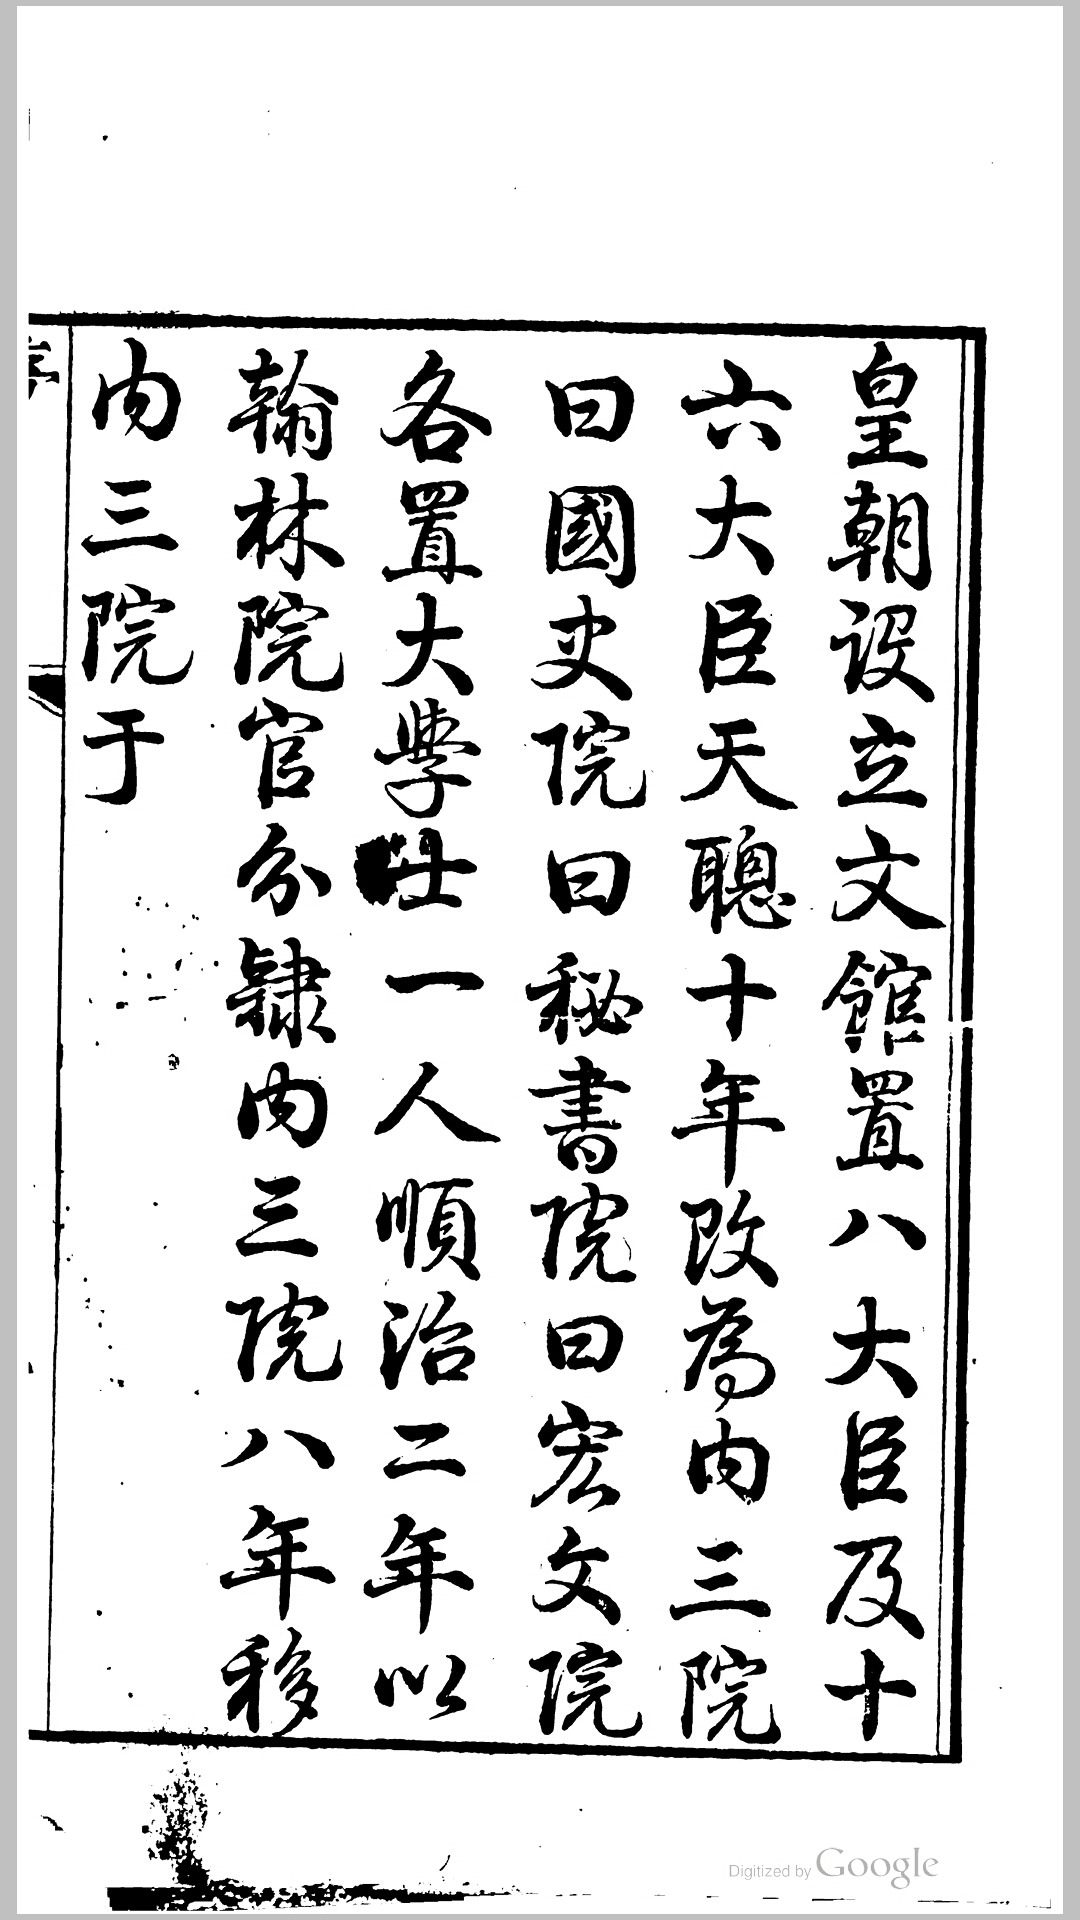 皇朝設立文館置八大臣及十
六大臣天聰十年改為內三院
曰國史院曰秘書院曰宏文院
各置大學士一人順治二年以
翰林院官分隸內三院八年移
內三院于
序
Digitized by Google